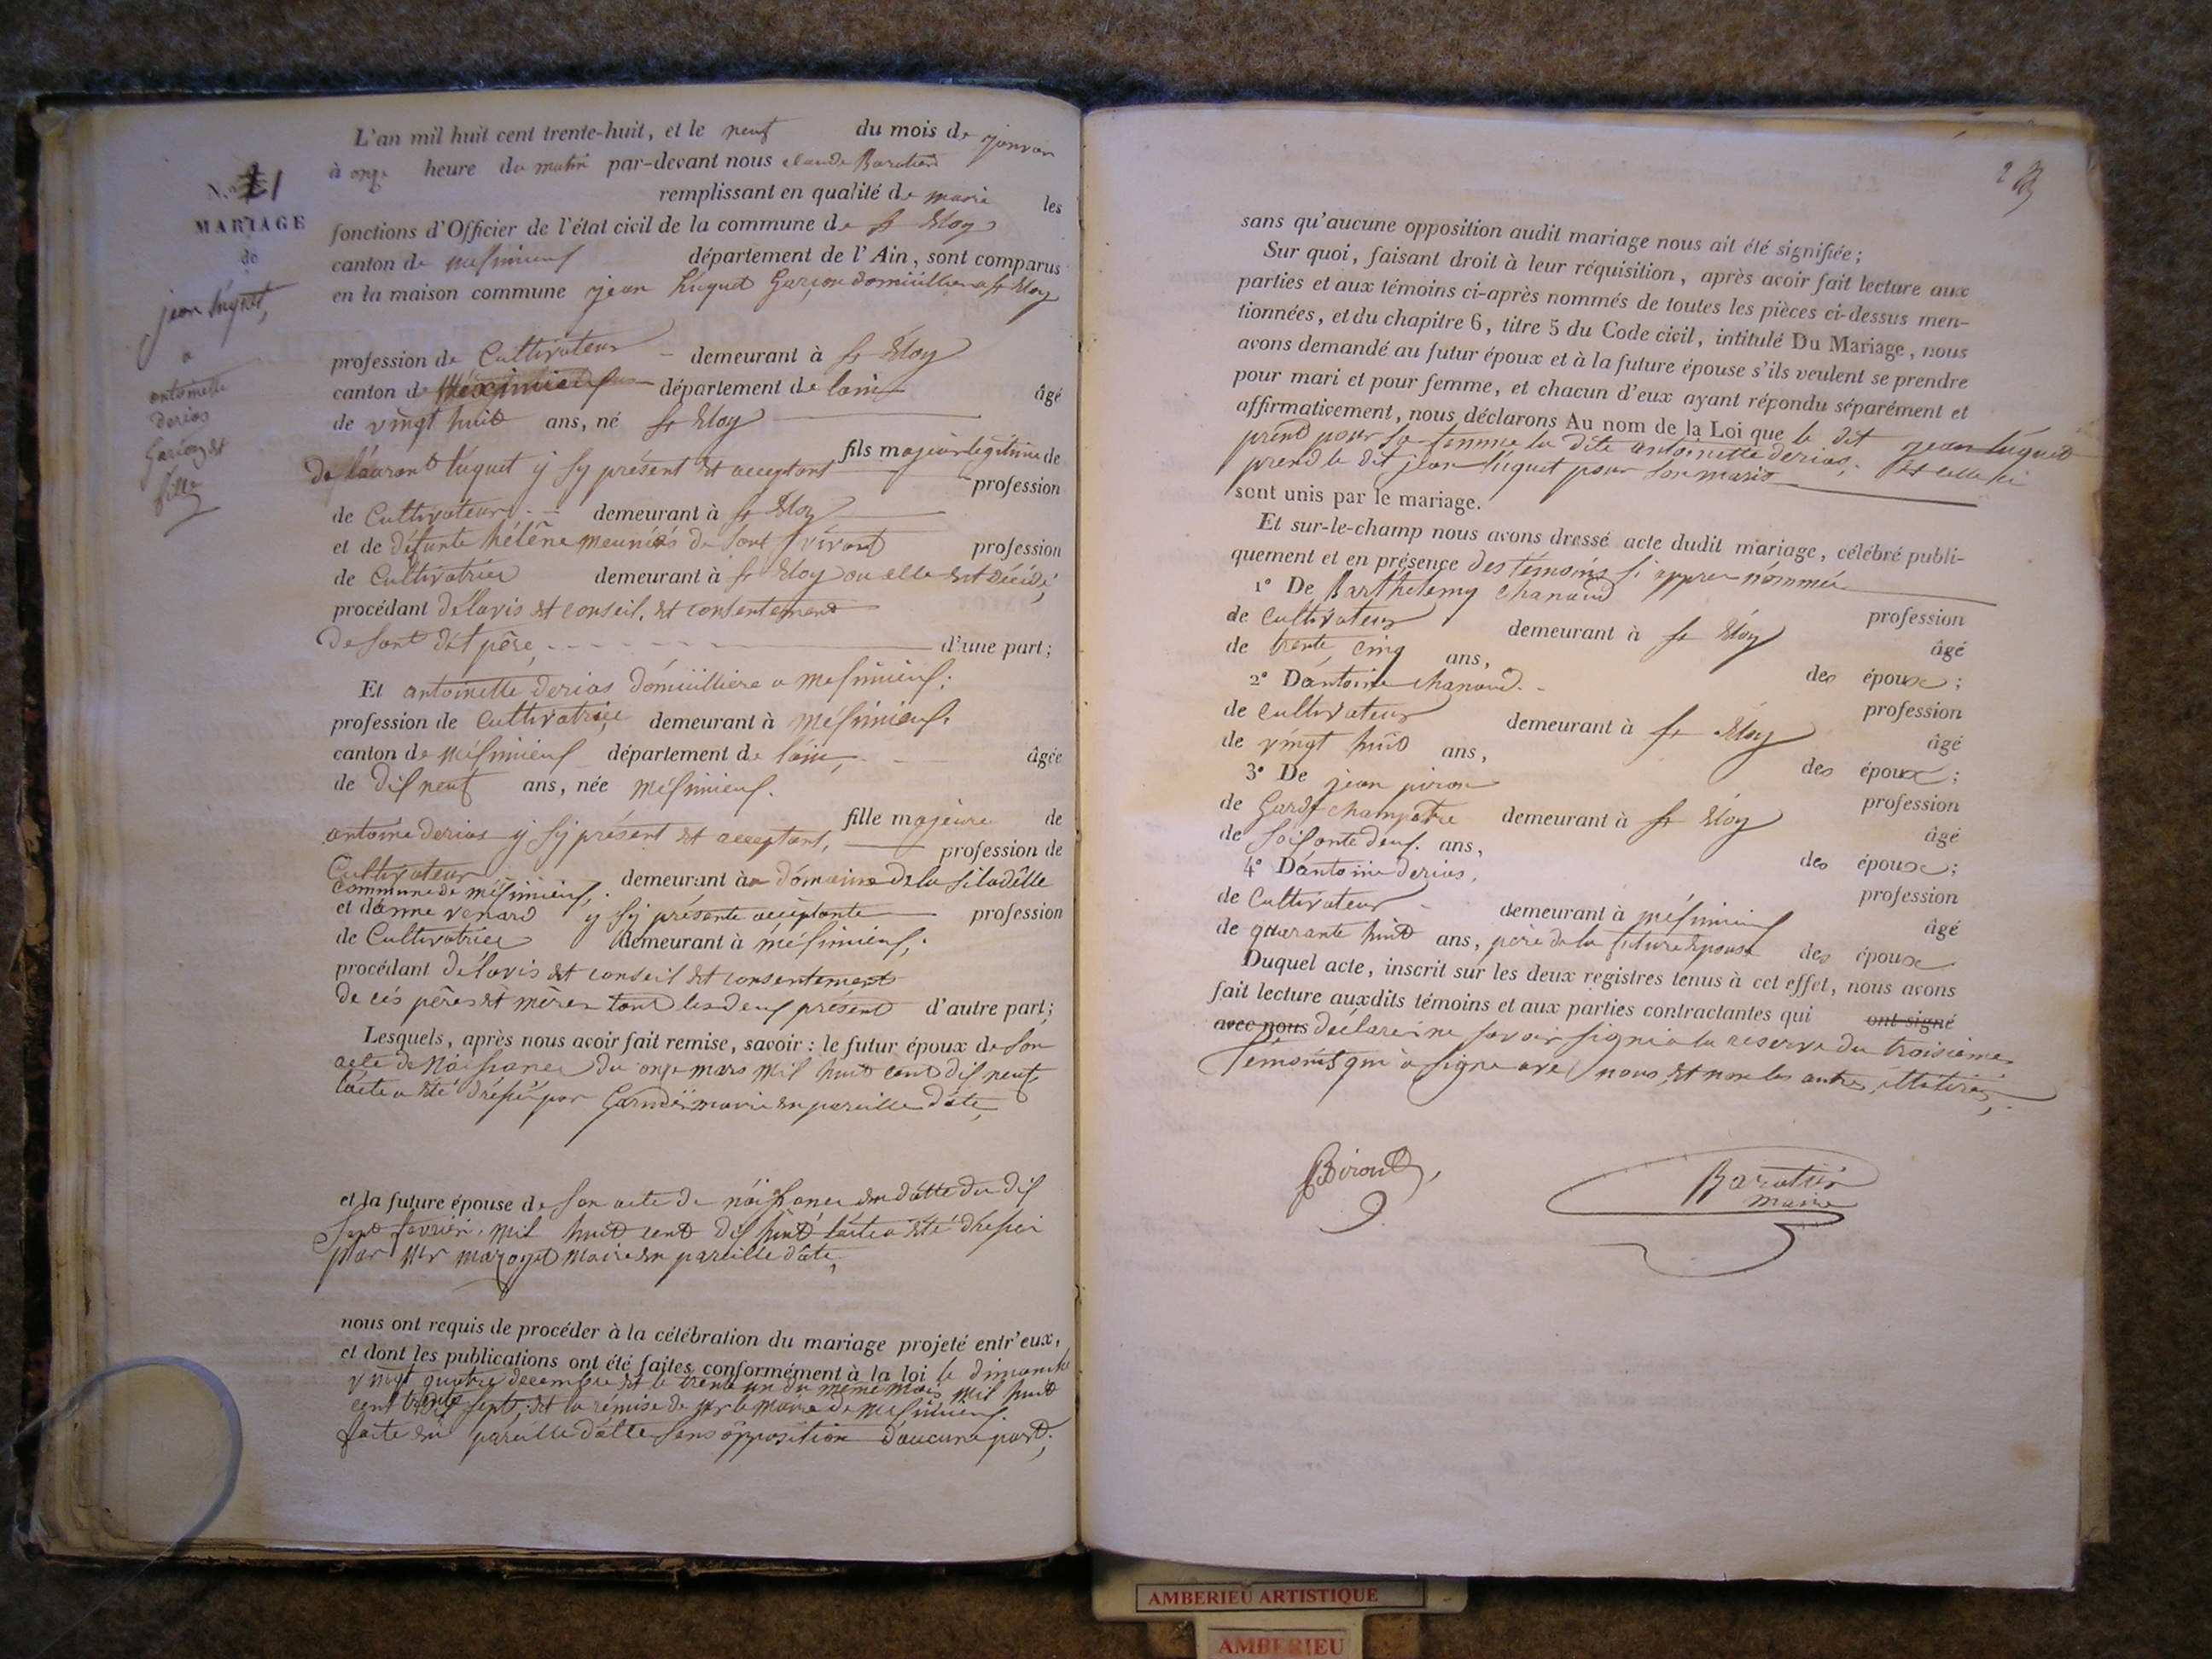 N.º 1
MARIAGE
de
jean lúquet,
a
antoinette
derias
Garçon et
fille
L'an mil huit cent trente-huit, et le neuf du mois de janvier
à onze heure du matin par-devant nous claude Baratier
remplissant en qualité de maire les
fonctions d'Officier de l'état civil de la commune de st Eloy
canton de mésimieux département de l'Ain, sont comparus
en la maison commune jean lúquet Garçon domicillier a st Eloy
profession de Cultivateur demeurant à st Eloy
canton de Méximieux département de lain âgé
de vingt huit ans, né st Eloy
fils majeur légitime de
de laurant lúquet y sy présent et acceptant profession
de Cultivateur demeurant à st Eloy
et de défunte hélène meuniés de sont vivant profession
de Cultivatrice demeurant à st Eloy ou elle est décédé,
procédant délavis et conseil, et consentement
de sont dit père, d'une part;
Et antoinette derias domicillière a mésimieux;
profession de Cultivatrice demeurant à mésimieux.
canton de mésimieux département de lain, âgée
de dix neuf ans, née mésimieux.
fille majeure de
antoine derias y sy présent et acceptant, profession de
Cultivateur demeurant à domaine de la sitadèlle
commune de mésimieux,
et danne venard y sy présente acceptante profession
de Cultivatrice demeurant à mésimieux,
procédant délavis et conseil et consentement
de cés pères et mères tout les deux présent d'autre part;
Lesquels, après nous avoir fait remise, savoir: le futur époux de son
acte de Naissance du onze mars mil huit cent dix neuf
lacte a été dréssé par maire en pareille date,
et la future épouse de son acte de naissance en datte du dix
sept fevrier, mil huit cent dix huit lacte a été dressé
par Mr maire en pareille date,
nous ont requis de procéder à la célébration du mariage projeté entr'eux,
et dont les publications ont été faites conformément à la loi le dimanche
vingt quatre decembre et le trente un du même mois mil huit
cent trente sept, et la rémise de Mr le Maire de mésimieux.
faite en pareille datte sans opposition daucune part,
2
sans qu'aucune opposition audit mariage nous ait été signifiée;
Sur quoi, faisant droit à leur réquisition, après avoir fait lecture aux
parties et aux témoins ci-après nommés de toutes les pièces ci-dessus men-
tionnées, et du chapitre 6, titre 5 du Code civil, intitulé Du Mariage, nous
avons demandé au futur époux et à la future épouse s'ils veulent se prendre
pour mari et pour femme, et chacun d'eux ayant répondu séparément et
affirmativement, nous déclarons Au nom de la Loi que le dit jean lúquet
prend pour sa femme la dite antoinette derias, et celle si
prend le dit jean lúquet pour son marit
sont unis par le mariage.
Et sur-le-champ nous avons dressé acte dudit mariage, célébré publi-
quement et en présence des témoins si apprer nommée
1º De Barthélemy Chanaud profession
de Cultivateur demeurant à st Eloy âgé
de trente cinq ans, des époux;
2º Dantoine chanaud. profession
de cultivateur demeurant à st Eloy âgé
de vingt huit ans, des époux;
3º De jean piron profession
de Garde champetre demeurant à st Eloy âgé
de soisante deux. ans, des époux;
4º Dantoine derias, profession
de Cultivateur demeurant à mésimieux âgé
de quarante huit ans, père de la future épouse des époux
Duquel acte, inscrit sur les deux registres tenus à cet effet, nous avons
fait lecture auxdits témoins et aux parties contractantes qui ont signé
avec nous déclare ne savoir signé a la reserve du troisième
Témoins qui a signé avec nous et non les autres
Baratier
maire
AMBERIEU ARTISTIQUE
AMBERIEU